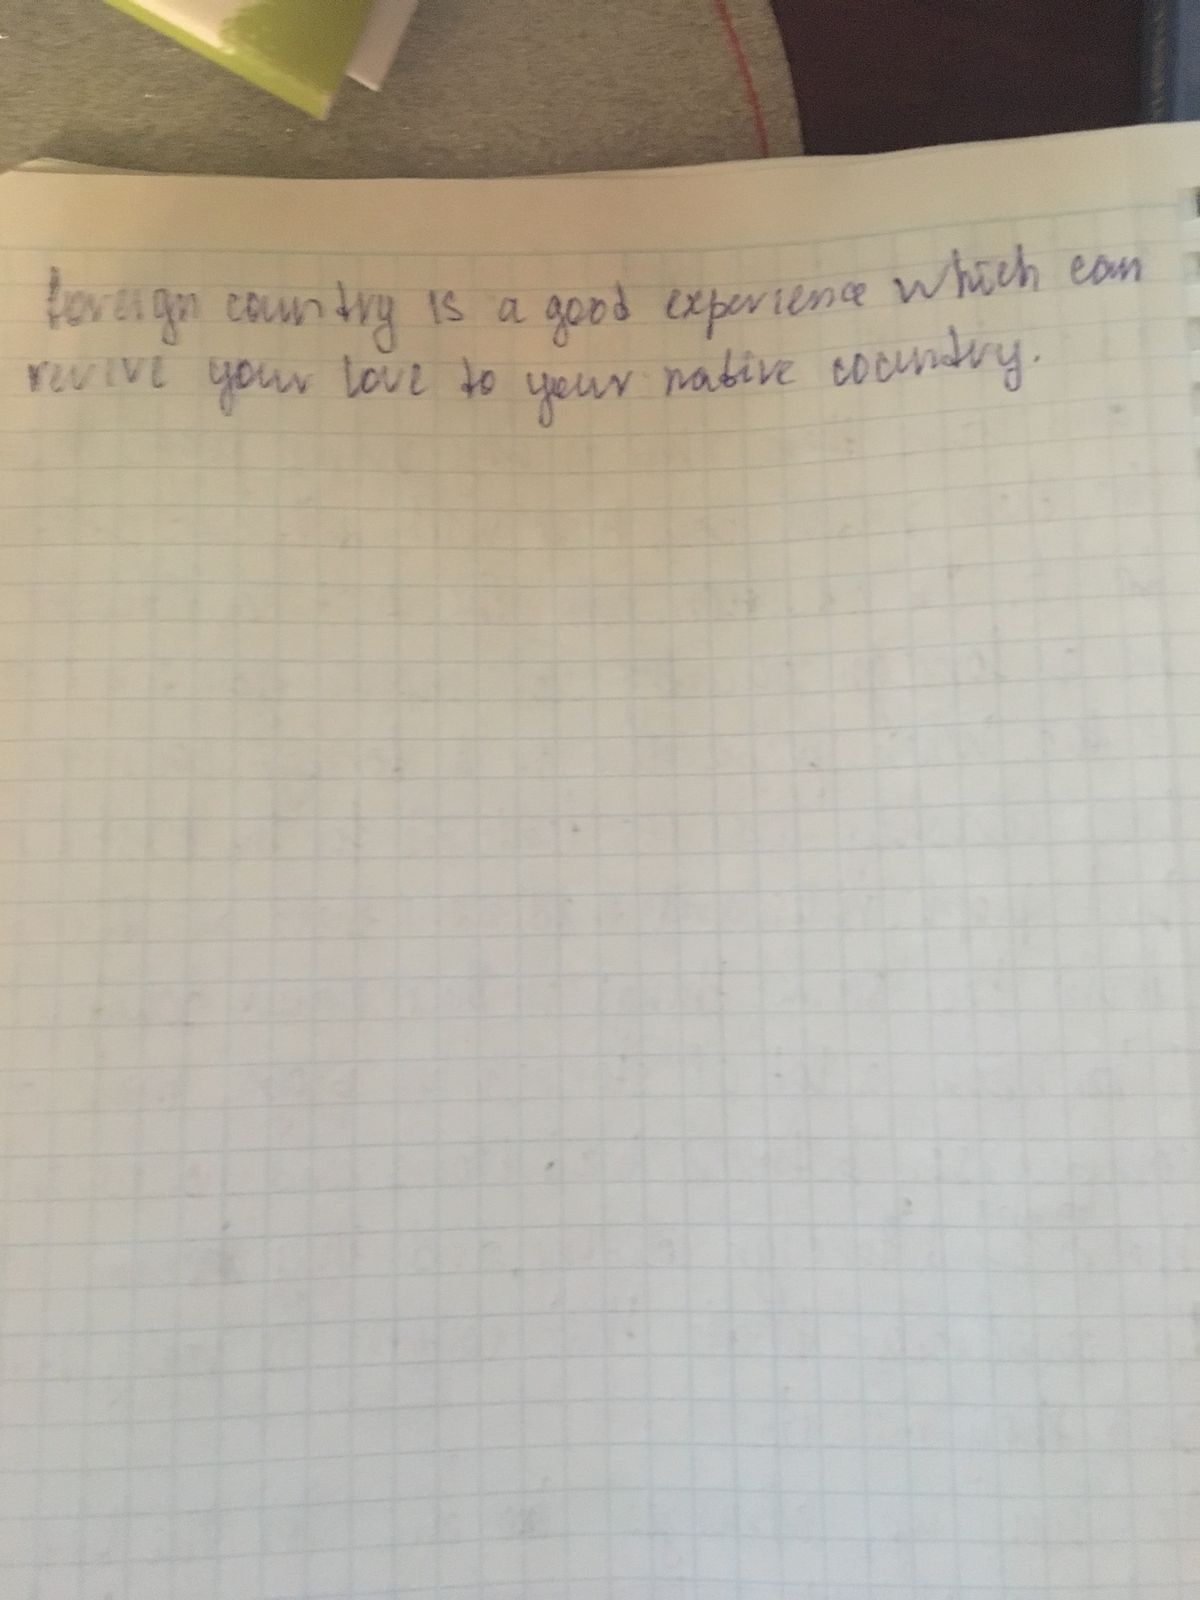 foreign country is a good experience which can
revive your love to your native cocuntry.